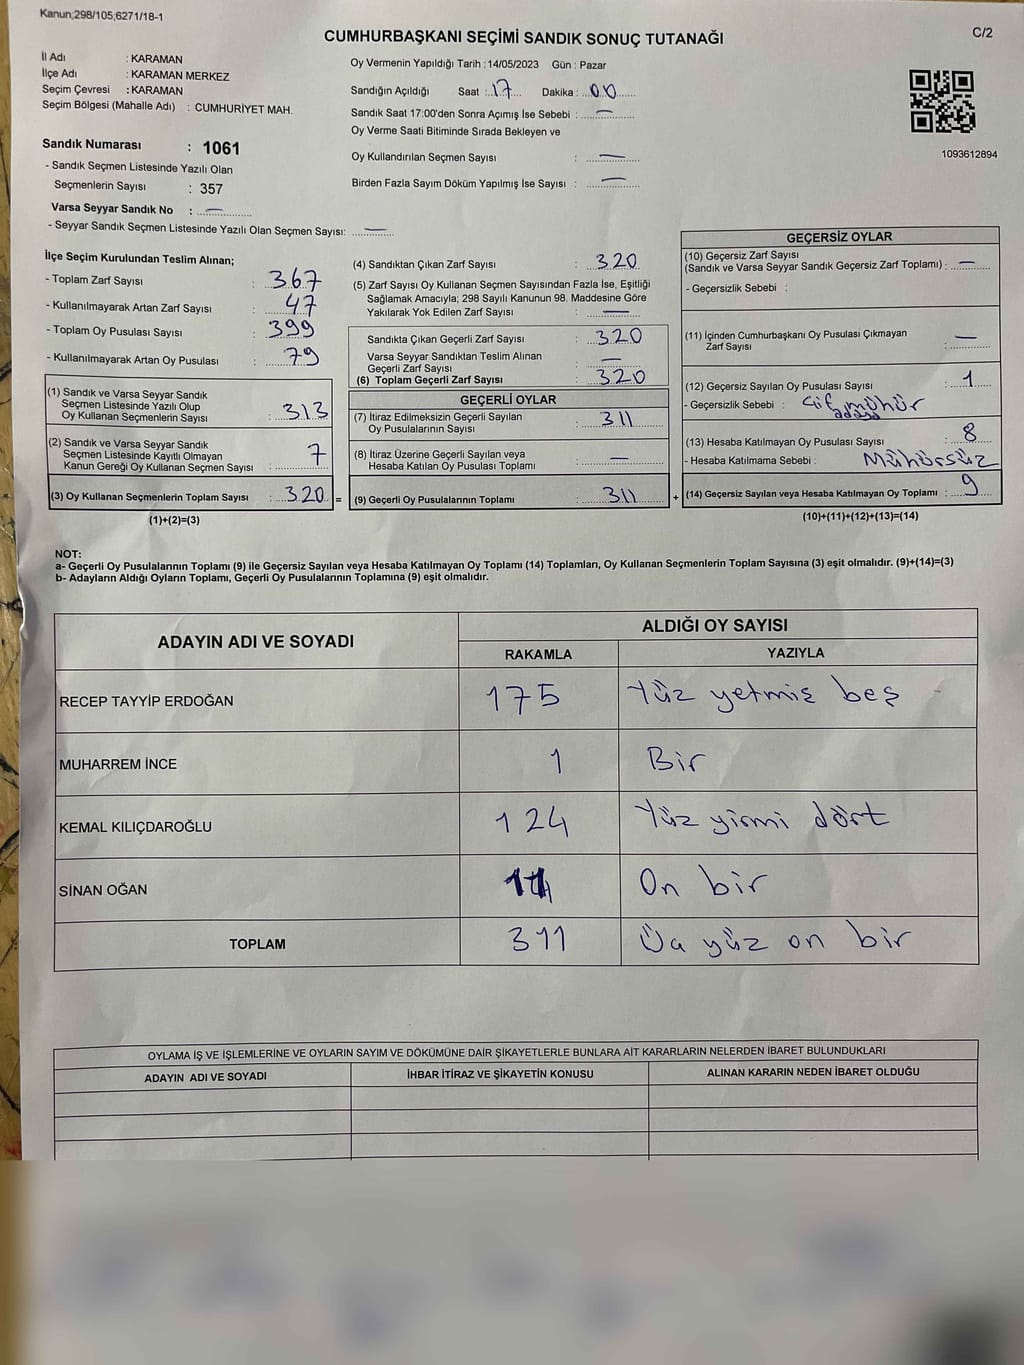 Kanun;298/105,6271/18-1
C/2
CUMHURBAŞKANI SEÇİMİ SANDIK SONUÇ TUTANAĞI
İl Adı : KARAMAN
İlçe Adı : KARAMAN MERKEZ
Seçim Çevresi : KARAMAN
Seçim Bölgesi (Mahalle Adı) : CUMHURİYET MAH.
Sandık Numarası : 1061
- Sandık Seçmen Listesinde Yazılı Olan
Seçmenlerin Sayısı : 357
Varsa Seyyar Sandık No : —
- Seyyar Sandık Seçmen Listesinde Yazılı Olan Seçmen Sayısı: —
Oy Vermenin Yapıldığı Tarih : 14/05/2023 Gün : Pazar
Sandığın Açıldığı Saat : 17 Dakika : 00
Sandık Saat 17:00'den Sonra Açımış İse Sebebi : —
Oy Verme Saati Bitiminde Sırada Bekleyen ve
Oy Kullandırılan Seçmen Sayısı : —
Birden Fazla Sayım Döküm Yapılmış İse Sayısı : —
1093612894
İlçe Seçim Kurulundan Teslim Alınan;
- Toplam Zarf Sayısı : 367
- Kullanılmayarak Artan Zarf Sayısı : 47
- Toplam Oy Pusulası Sayısı : 399
- Kullanılmayarak Artan Oy Pusulası : 79
(1) Sandık ve Varsa Seyyar Sandık
Seçmen Listesinde Yazılı Olup
Oy Kullanan Seçmenlerin Sayısı : 313
(2) Sandık ve Varsa Seyyar Sandık
Seçmen Listesinde Kayıtlı Olmayan
Kanun Gereği Oy Kullanan Seçmen Sayısı : 7
(3) Oy Kullanan Seçmenlerin Toplam Sayısı : 320 =
(1)+(2)=(3)
(4) Sandıktan Çıkan Zarf Sayısı : 320
(5) Zarf Sayısı Oy Kullanan Seçmen Sayısından Fazla İse, Eşitliği
Sağlamak Amacıyla; 298 Sayılı Kanunun 98. Maddesine Göre
Yakılarak Yok Edilen Zarf Sayısı : —
Sandıkta Çıkan Geçerli Zarf Sayısı : 320
Varsa Seyyar Sandıktan Teslim Alınan
Geçerli Zarf Sayısı : —
(6) Toplam Geçerli Zarf Sayısı : 320
GEÇERLİ OYLAR
(7) İtiraz Edilmeksizin Geçerli Sayılan
Oy Pusulalarının Sayısı : 311
(8) İtiraz Üzerine Geçerli Sayılan veya
Hesaba Katılan Oy Pusulası Toplamı : —
(9) Geçerli Oy Pusulalarının Toplamı : 311 +
GEÇERSİZ OYLAR
(10) Geçersiz Zarf Sayısı
(Sandık ve Varsa Seyyar Sandık Geçersiz Zarf Toplamı) : —
- Geçersizlik Sebebi :
(11) İçinden Cumhurbaşkanı Oy Pusulası Çıkmayan
Zarf Sayısı : —
(12) Geçersiz Sayılan Oy Pusulası Sayısı : 1
- Geçersizlik Sebebi : mühür
(13) Hesaba Katılmayan Oy Pusulası Sayısı : 8
- Hesaba Katılmama Sebebi : Mühürsüz
(14) Geçersiz Sayılan veya Hesaba Katılmayan Oy Toplamı : 9
(10)+(11)+(12)+(13)=(14)
NOT:
a- Geçerli Oy Pusulalarının Toplamı (9) ile Geçersiz Sayılan veya Hesaba Katılmayan Oy Toplamı (14) Toplamları, Oy Kullanan Seçmenlerin Toplam Sayısına (3) eşit olmalıdır. (9)+(14)=(3)
b- Adayların Aldığı Oyların Toplamı, Geçerli Oy Pusulalarının Toplamına (9) eşit olmalıdır.
ADAYIN ADI VE SOYADI
ALDIĞI OY SAYISI
RAKAMLA YAZIYLA
RECEP TAYYİP ERDOĞAN 175 Yüz yetmiş beş
MUHARREM İNCE 1 Bir
KEMAL KILIÇDAROĞLU 124 Yüz yirmi dört
SİNAN OĞAN 11 On bir
TOPLAM 311 Üç yüz on bir
OYLAMA İŞ VE İŞLEMLERİNE VE OYLARIN SAYIM VE DÖKÜMÜNE DAİR ŞİKAYETLERLE BUNLARA AİT KARARLARIN NELERDEN İBARET BULUNDUKLARI
ADAYIN ADI VE SOYADI İHBAR İTİRAZ VE ŞİKAYETİN KONUSU ALINAN KARARIN NEDEN İBARET OLDUĞU